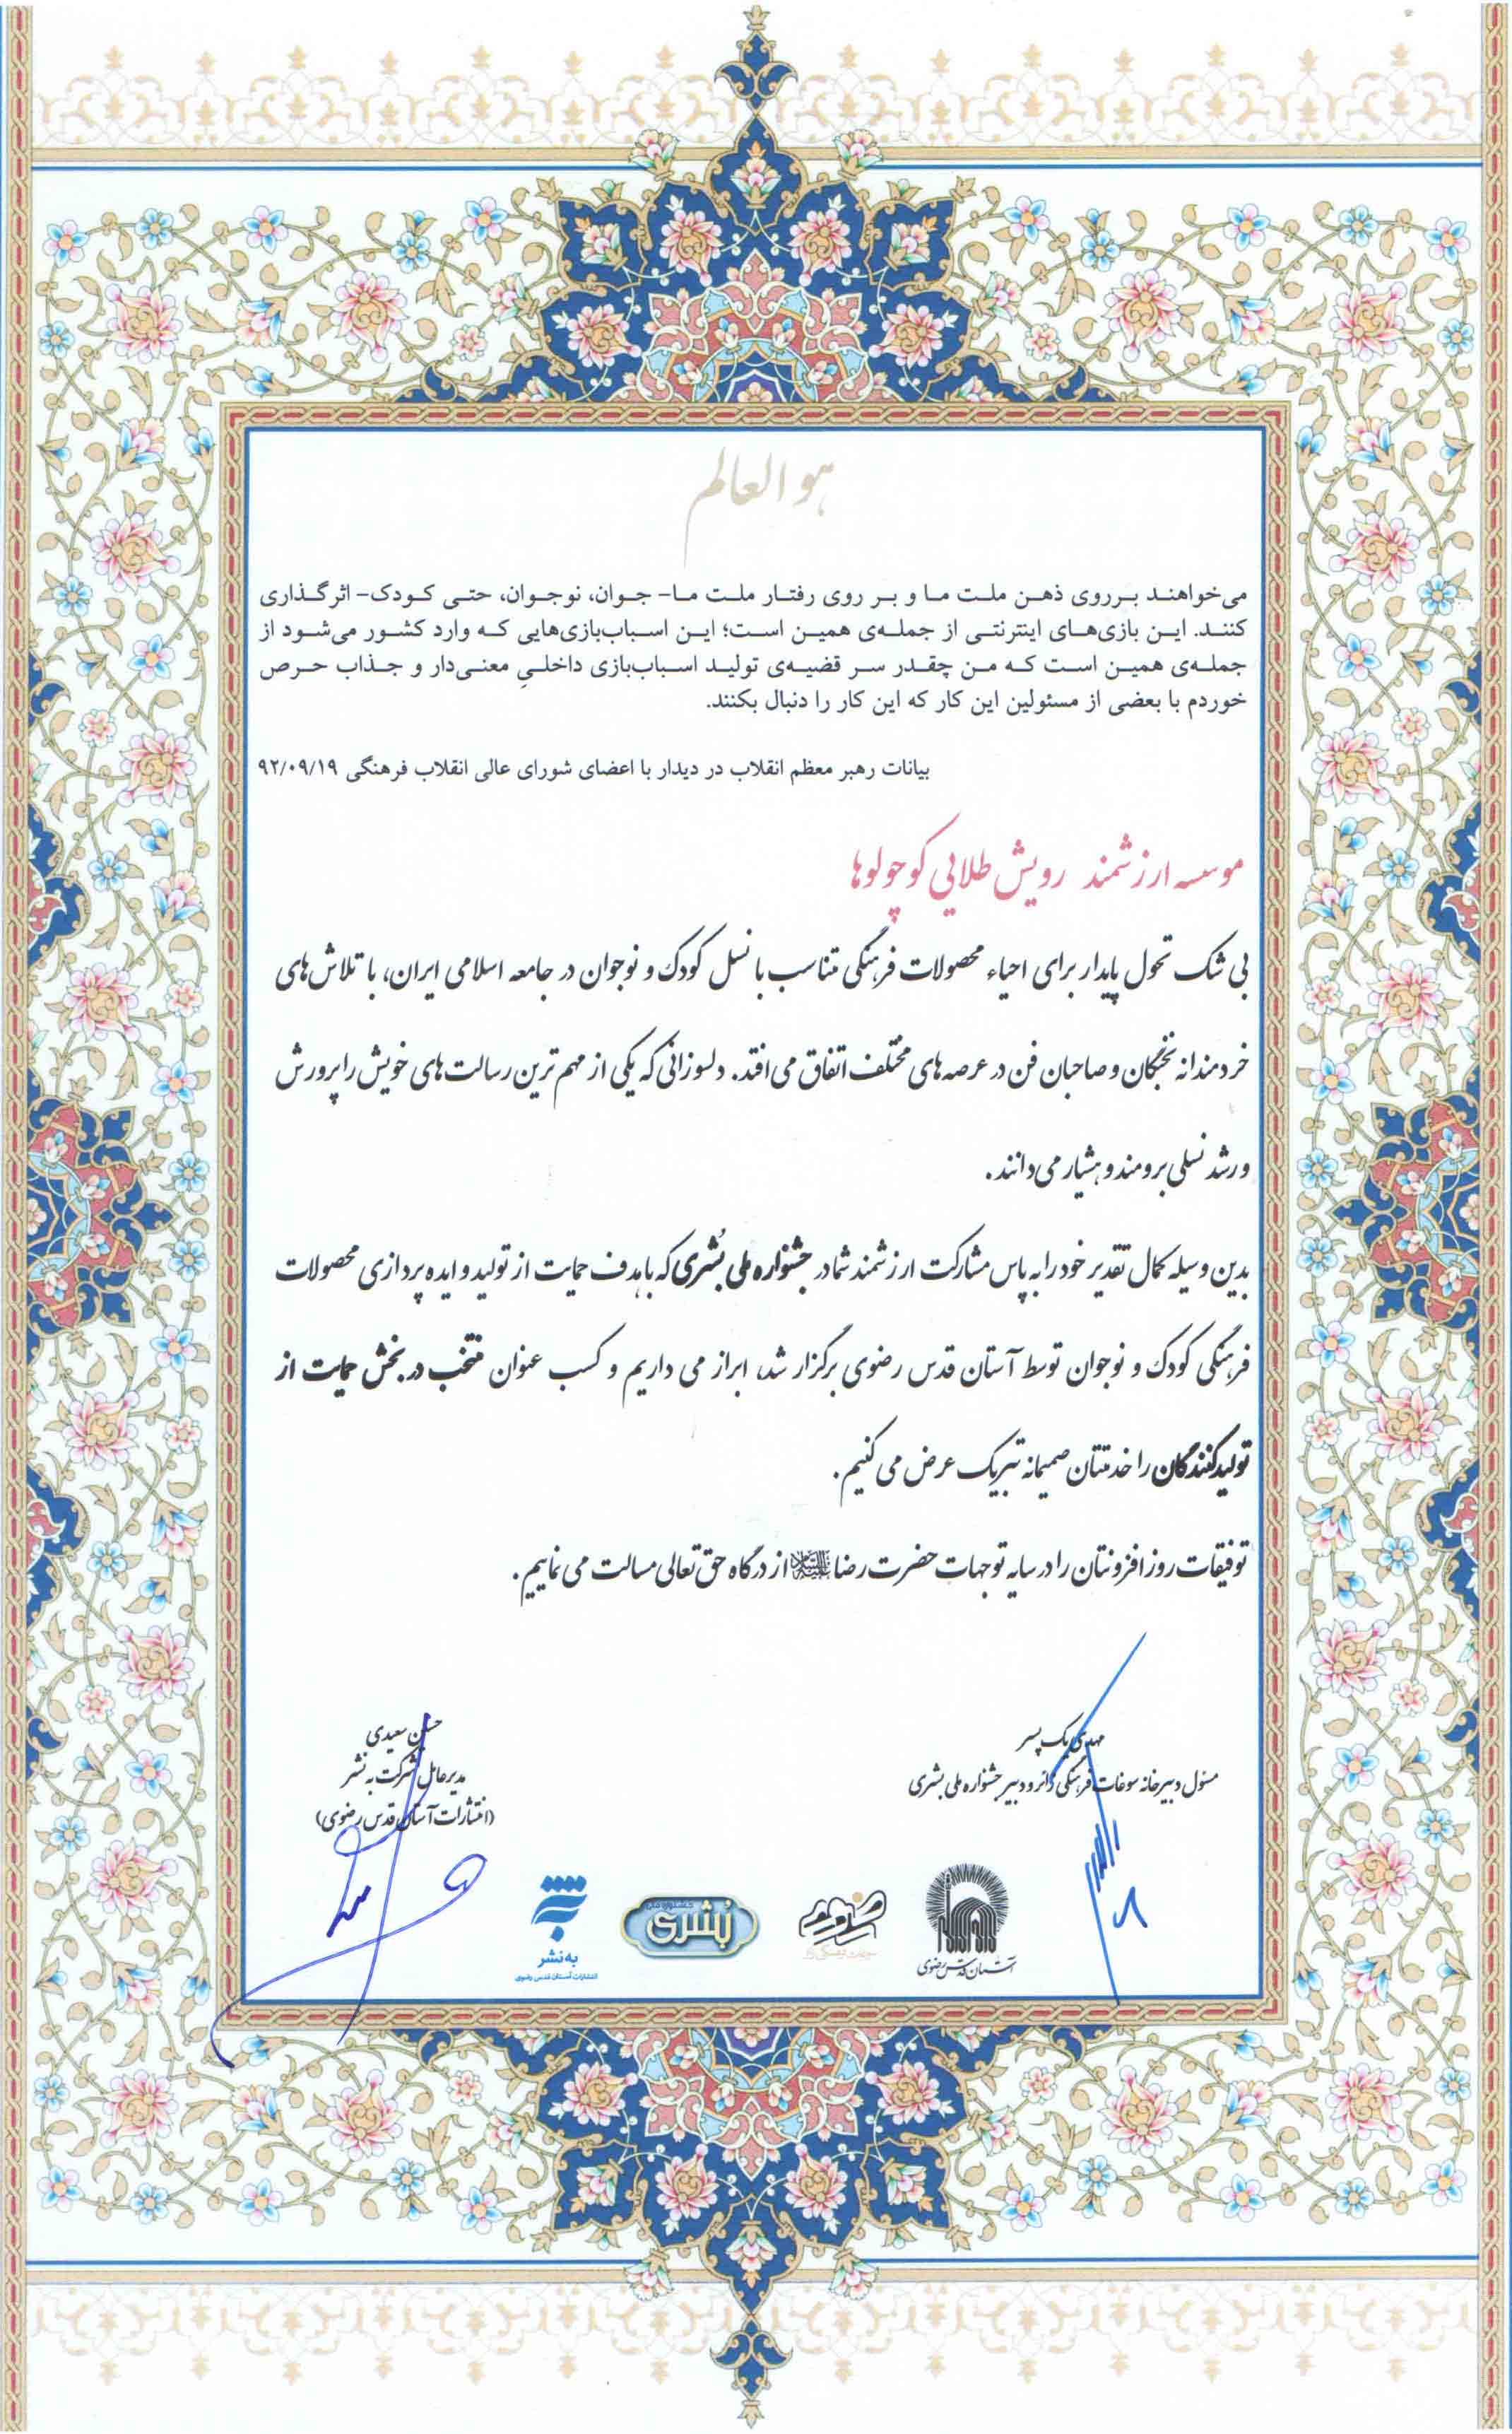 هو العالم
می‌خواهند بـرروی ذهـن ملـت مـا و بـر روی رفتـار ملـت مـا- جـوان، نوجـوان، حتـی کـودک- اثرگـذاری
کننـد. ایـن بازی‌هـای اینترنتـی از جملـه‌ی همیـن اسـت؛ ایـن اسـباب‌بازی‌هایی کـه وارد کشـور می‌شـود از
جملـه‌ی همیـن اسـت کـه مـن چقـدر سـر قضیـه‌ی تولیـد اسـباب‌بازی داخلـیِ معنـی‌دار و جـذاب حـرص
خوردم با بعضی از مسئولین این کار که این کار را دنبال بکنند.
بیانات رهبر معظم انقلاب در دیدار با اعضای شورای عالی انقلاب فرهنگی ۹۲/۰۹/۱۹
موسسه ارزشمند رویش طلایی کوچولوها
بی شک تحول پایدار برای احیاء محصولات فرهنگی متناسب با نسل کودک و نوجوان در جامعه اسلامی ایران، با تلاش های
خردمندانه نخبگان و صاحبان فن در عرصه های مختلف اتفاق می افتد. دلسوزانی که یکی از مهم ترین رسالت های خویش را پرورش
و رشد نسلی برومند و هشیار می دانند.
بدین وسیله کمال تقدیر خود را به پاس مشارکت ارزشمند شما در جشنواره ملی بُشری که با هدف حمایت از تولید و ایده پردازی محصولات
فرهنگی کودک و نوجوان توسط آستان قدس رضوی برگزار شد، ابراز می داریم و کسب عنوان منتخب در بخش حمایت از
تولیدکنندگان را خدمتتان صمیمانه تبریک عرض می کنیم.
توفیقات روز افزونتان را در سایه توجهات حضرت رضا علیه‌السلام از درگاه حق تعالی مسالت می نماییم.
مهدی یک پسر
مسئول دبیرخانه سوغات فرهنگی زائر و دبیر جشنواره ملی بشری
حسین سعیدی
مدیرعامل شرکت به نشر
(انتشارات آستان قدس رضوی)
آستان قدس رضوی
بُشری
به‌نشر
انتشارات آستان قدس رضوی